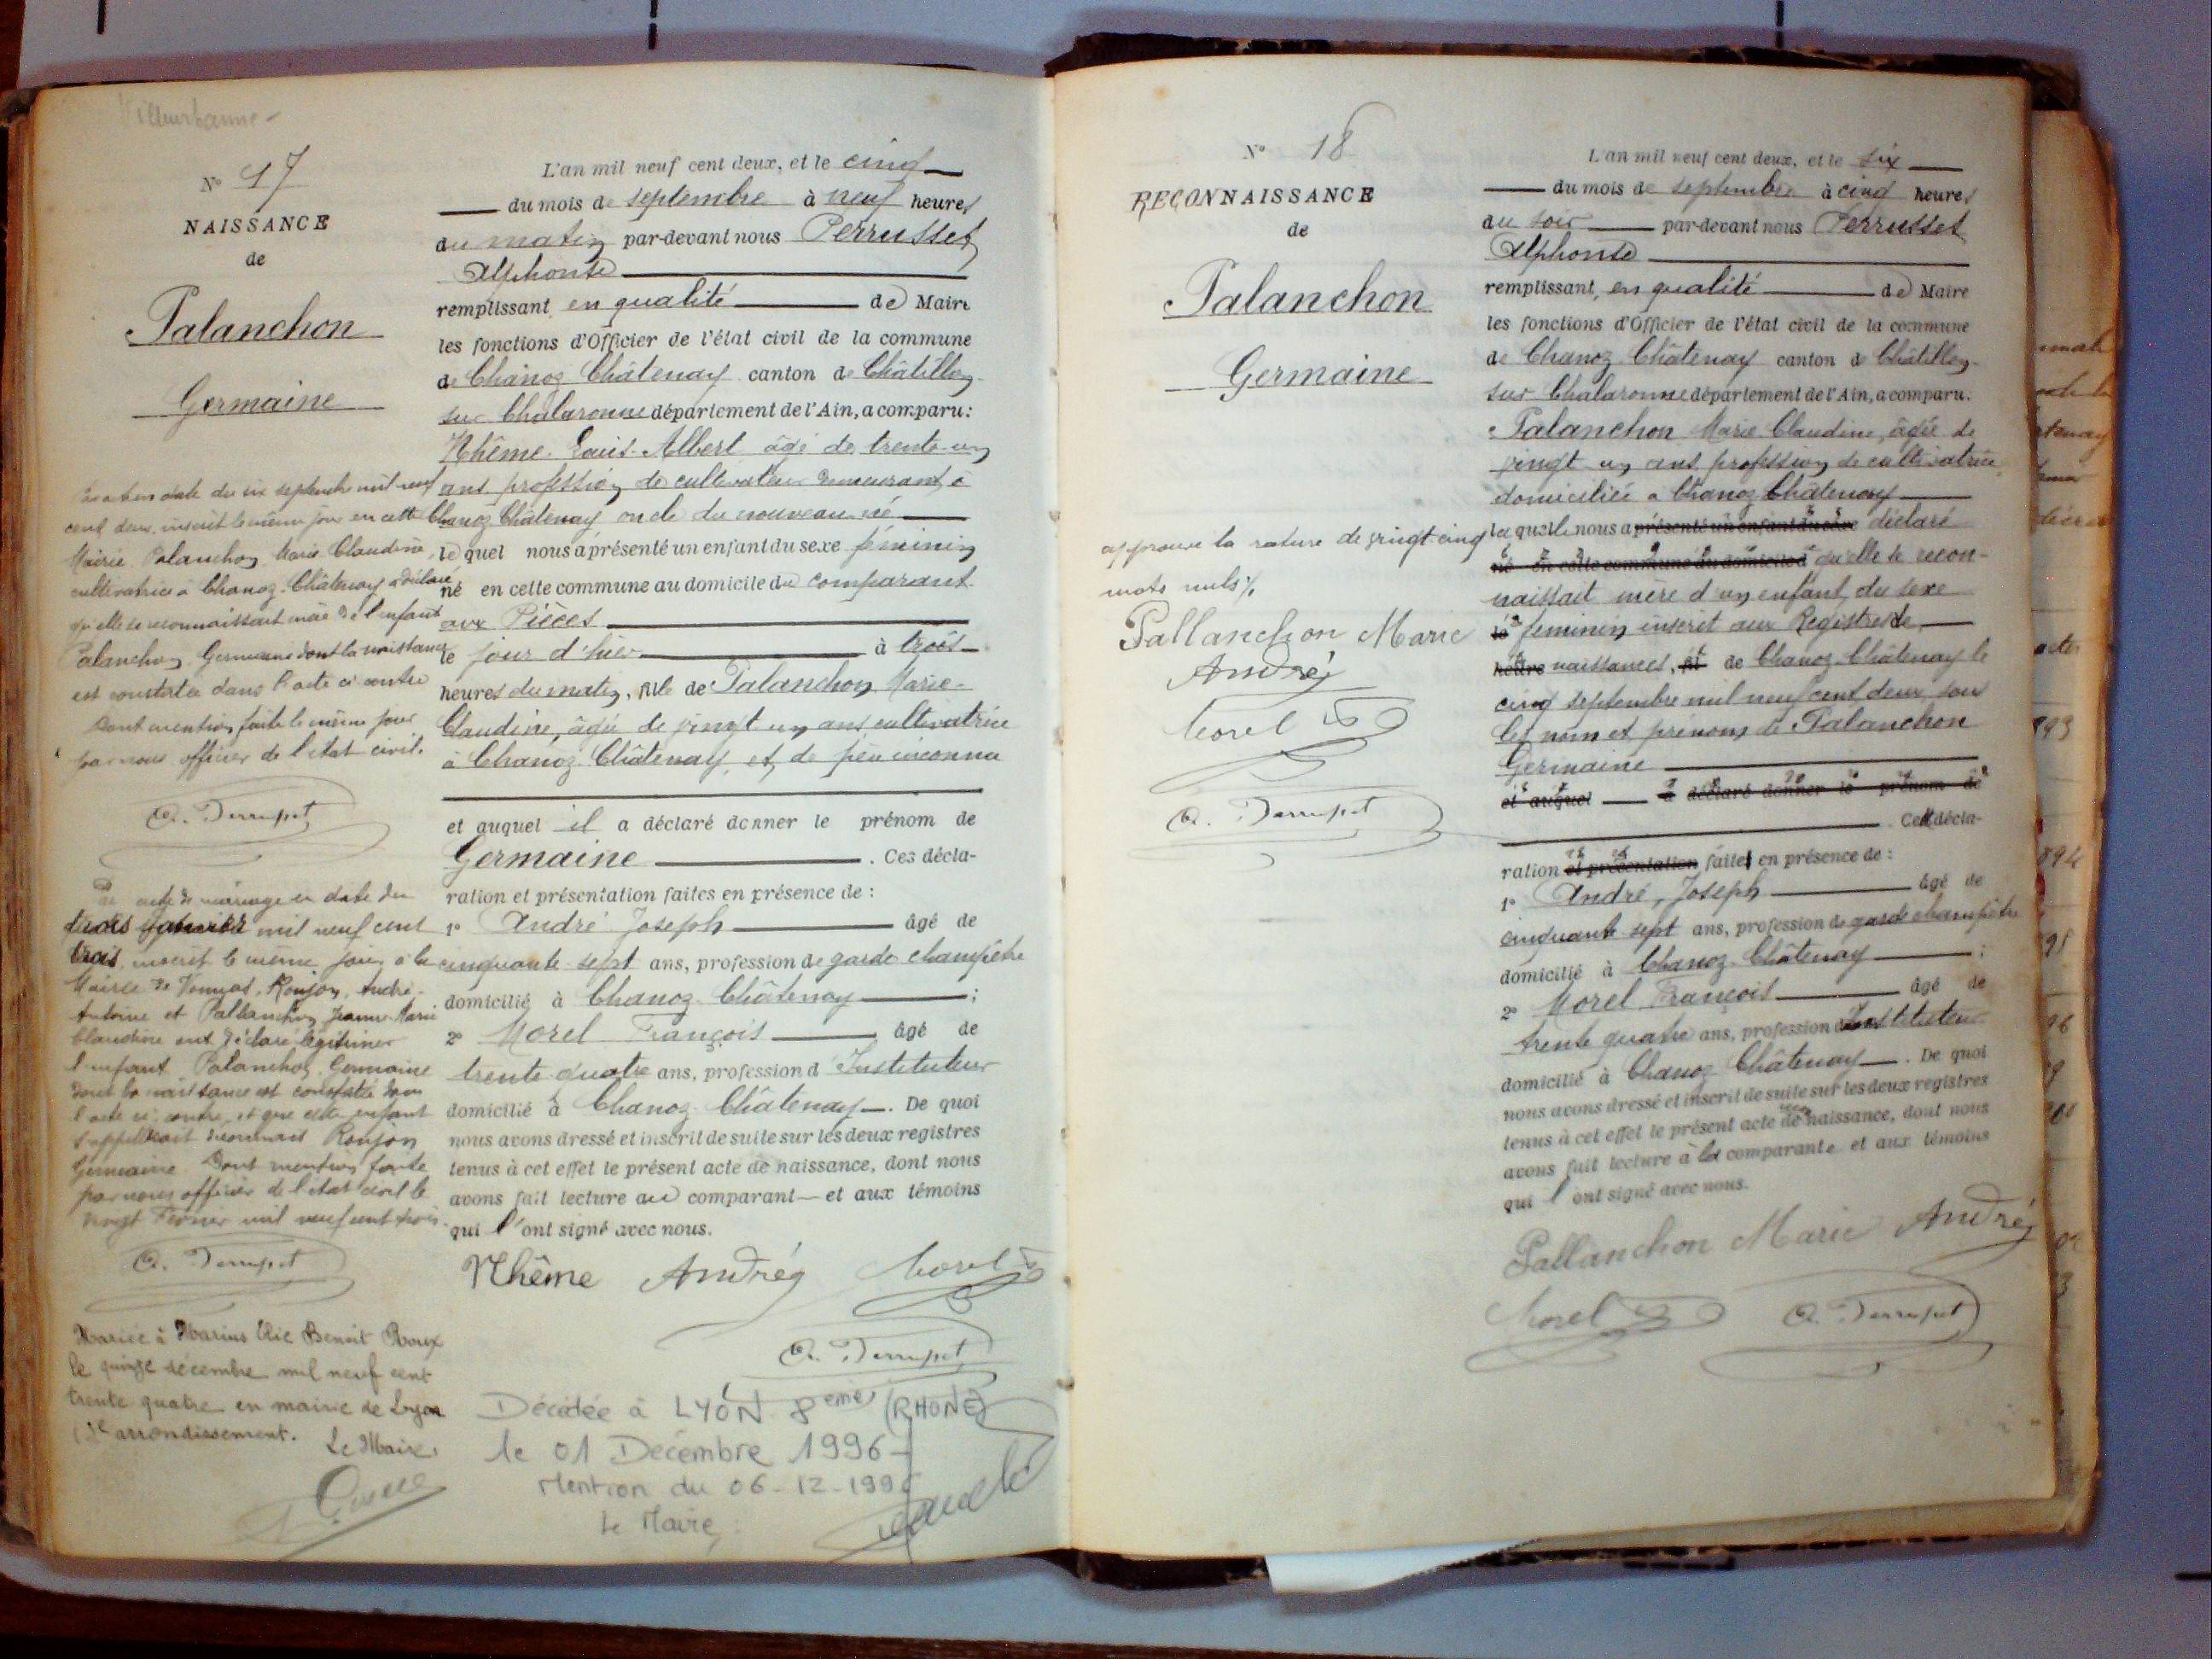 Villeurbanne -
N° 17
NAISSANCE
de
Palanchon
Germaine
L'an mil neuf cent deux, et le cinq
du mois de septembre à neuf heures
du matin par-devant nous Perrusset
Alphonse
remplissant en qualité de Maire
les fonctions d'Officier de l'état civil de la commune
de Chanoz Châtenay canton de Châtillon
sur Chalaronne département de l'Ain, a comparu:
Nhême Louis-Albert âgé de trente-un
ans profession de cultivateur demeurant à
Chanoz Châtenay oncle du nouveau né
lequel nous a présenté un enfant du sexe féminin
né en cette commune au domicile du comparant
aux Pièces
le jour d'hier à trois
heures du matin, fille de Palanchon Marie-
Claudine, âgée de vingt un ans cultivatrice
à Chanoz Châtenay et de père inconnu
et auquel il a déclaré donner le prénom de
Germaine . Ces décla-
ration et présentation faites en présence de :
1° André Joseph âgé de
cinquante-sept ans, profession de garde champêtre
domicilié à Chanoz Châtenay ;
2° Morel François âgé de
trente quatre ans, profession d'Instituteur
domicilié à Chanoz Châtenay . De quoi
nous avons dressé et inscrit de suite sur les deux registres
tenus à cet effet le présent acte de naissance, dont nous
avons fait lecture au comparant et aux témoins
qui l'ont signé avec nous.
Nhême André Morel
A. Perrusset
date du six septembre mil neuf
cent deux, inscrit le même jour en cette
Mairie Palanchon Marie Claudine
cultivatrice à Chanoz-Châtenay a déclaré
qu'elle se reconnaissait mère de l'enfant
Palanchon Germaine dont la naissance
est constatée dans l'acte ci contre
Dont mention faite le même jour
par nous officier de l'état civil.
A. Perrusset
Par acte de mariage en date du
janvier mil neuf cent
trois inscrit le même jour à la
Mairie de Vonnas, Roujon, André-
Antoine et Pallanchon Jeanne-Marie
Claudine ont déclaré légitimer
l'enfant Palanchon Germaine
dont la naissance est constatée dans
l'acte ci-contre, et que cette enfant
s'appellerait désormais Roujon
Germaine. Dont mention faite
par nous officier de l'état civil le
vingt Février mil neuf cent trois.
A. Perrusset
Mariée à Marius Elie Benoit Roux
le quinze décembre mil neuf cent
trente quatre en mairie de Lyon
arrondissement.
Le Maire
Décédée à LYON 8eme (RHONE)
le 01 Décembre 1996
Mention du 06-12-1996
Le Maire,
N° 18
RECONNAISSANCE
de
Palanchon
Germaine
L'an mil neuf cent deux, et le six
du mois de septembre à cinq heures
du soir par-devant nous Perrusset
Alphonse
remplissant, en qualité de Maire
les fonctions d'Officier de l'état civil de la commune
de Chanoz Châtenay canton de Châtillon
sur Chalaronne département de l'Ain, a comparu.
Palanchon Marie Claudine, âgée de
vingt un ans profession de cultivatrice
domiciliée à Chanoz Châtenay
laquelle nous a présenté un enfant du sexe déclaré
né en cette commune au domicile d qu'elle se recon-
naissait mère d'un enfant du sexe
le féminin inscrit aux Registres de
heure naissances, fil de Chanoz Châtenay le
cinq septembre mil neuf cent deux sous
les nom et prénoms de Palanchon
Germaine
et auquel a déclaré donner le prénom de
Cette décla-
ration et présentation faite en présence de :
1° André, Joseph âgé de
cinquante sept ans, profession de garde champêtre
domicilié à Chanoz Châtenay ;
2° Morel François âgé de
trente quatre ans, profession d'Instituteur
domicilié à Chanoz Châtenay . De quoi
nous avons dressé et inscrit de suite sur les deux registres
tenus à cet effet le présent acte de naissance, dont nous
avons fait lecture à la comparante et aux témoins
qui l'ont signé avec nous.
Pallanchon Marie André
Morel A. Perrusset
approuvé la rature de vingt cinq
mots nuls
Pallanchon Marie
André
Morel
A. Perrusset